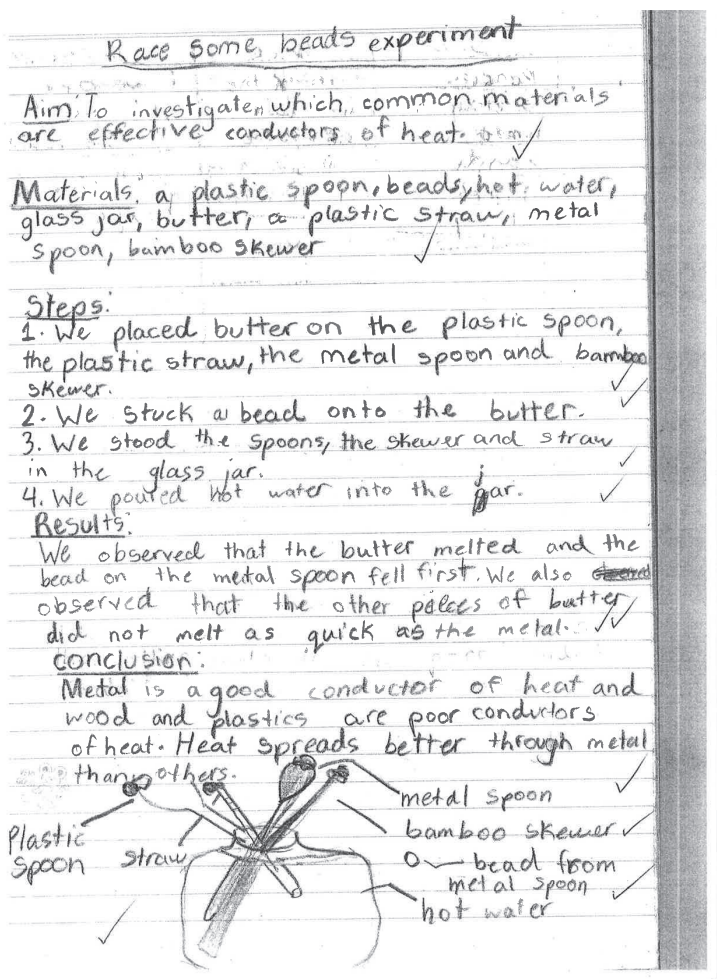 Race some beads experiment
Aim: To investigate which common materials
are effective conductors of heat.
Materials: a plastic spoon, beads, hot water,
glass jar, butter, a plastic straw, metal
spoon, bamboo skewer
Steps:
1. We placed butter on the plastic spoon,
the plastic straw, the metal spoon and bamboo
skewer.
2. We stuck a bead onto the butter.
3. We stood the spoons, the skewer and straw
in the glass jar.
4. We poured hot water into the jar.
Results:
We observed that the butter melted and the
bead on the metal spoon fell first. We also
observed that the other peices of butter
did not melt as quick as the metal.
Conclusion:
Metal is a good conductor of heat and
wood and plastics are poor conductors
of heat. Heat spreads better through metal
than others.
metal spoon
Plastic
spoon
straw
bamboo skewer
bead from
metal spoon
hot water